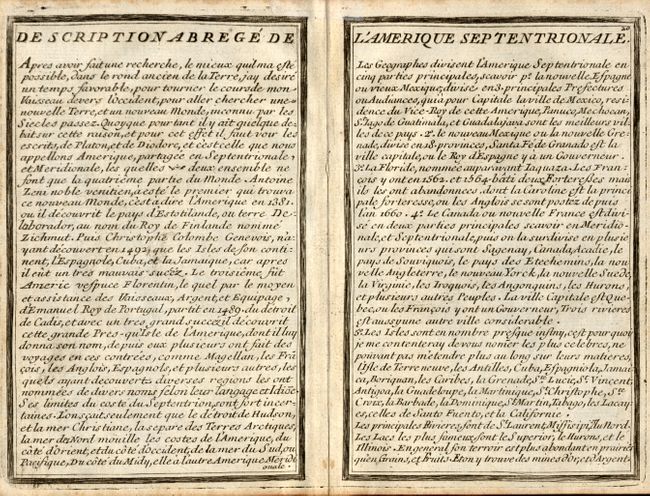 DESCRIPTION ABREGÉ DE
Apres avoir fait une recherche, le mieux quil m'a esté
possible, dans le rond ancien de la Terre, jay desiré
un temps favorable, pour tourner le cours de mon
Vaisseau devers l'occident, pour aller chercher une
nouvelle Terre, et un nouveau Monde, inconnu par les
Siecles passez. Quoyque pour tant il y ait quelque de-
bat sur cette raison, et pour cet effet il faut voir les
escrits, de Platon, et de Diodore, et c'est celle que nous
appellons Amerique, partagee en Septentrionale,
et Meridionale, les quelles deux ensemble ne
font que la quatriéme partie du Monde. Antoine
Zeni noble venitien, a esté le premier qui trouva
ce nouveau Monde, c'est à dire l'Amerique en 1381.
ou il découvrit le pays d'Estotilande, ou terre De-
laborador, au nom du Roy de Finlande nomme
Zichmut. Puis Christophe Colombe Genevois, n'a-
yant découvert en 1492 que les Isles de son conti-
nent, l'Espagnole, Cuba, et la Jamaique, car apres
il eüt un tres mauvais succéz. Le troisiéme fût
Americ vespuce Florentin, le quel par le moyen
et assistance des Vaisseaux, Argent, et Equipage,
d'Emanuel Roy de Portugal, partit en 1489. du détroit
de Cadis, et avec un tres grand succéz il découvrit
cette grande Pres-qu'Isle de l'Amerique, dont il luy
donna son nom, depuis eux plusieurs ont fait des
voyages en ces contreés, comme Magellan, les Frã-
çois, les Anglois, Espagnols, et plusieurs autres, les
quels ayant découvert diverses regions les ont
nommées de divers noms selon leur langage et Idiõe.
Ses limites du coste du Septentrion, sont fort incer-
taines. L'on sçait seulement que le détroit de Hudson,
et la mer Christiane, la separe des Terres Arctiques,
la mer du Nord mouille les costes de l'Amerique, du
côté d'orient, et du côté d'occident, de la mer du Sud, ou
Pacifique, Du côté du Midy, elle à l'autre Amerique Meridi
onale.
20
L'AMERIQUE SEPTENTRIONALE.
Les Geographes divisent l'Amerique Septentrionale en
cinq parties principales, scavoir pr. la nouvelle Espagne
ou vieux Mexique, divisé en 3. principales Prefectures
ou Audiances, qui a pour Capitale la ville de Mexico, resi-
dence du Vice-Roy de cette Amerique, Panuco, Mechocan,
S. Iago de Guatimala, et Guadalajara, sont les meilleures vil
les de ce pays. 2e. le nouveau Mexique ou la nouvelle Gre-
nade, divisé en 18. provinces, Santa Fé de Granado est la
ville capitale, ou le Roy d'Espagne y a un Gouverneur.
3e. La Floride, nommée auparavant Iaquaza. Les Fran-
çois y ont en 1562. et 1564. bâti deux Forteresses mais
ils les ont abandonnees, dont la Caroline est la princi-
pale forteresse, ou les Anglois se sont postez depuis
l'an 1660. 4e. Le Canada ou nouvelle France est divi-
sé en deux parties principales scavoir en Meridio-
nale, et Septentrionale, puis on la surdivise en plusie-
urs provinces qui sont Sagenay, Canada, Acadie, le
pays de Souriquois, le pays des Etechemins, la nou
velle Angleterre, le nouveau Yorck, la nouvelle Suede,
la Virginie, les Iroquois, les Angonquins, les Hurons,
et plusieurs autres Peuples. La ville Capitale est Que-
bec, ou les François y ont un Gouverneur, Trois rivieres
est aussy une autre ville considerable.
5e. Les Isles sont en nombre presque infiny, c'est pour quoy
je me contenteray de vous nomer les plus celebres, ne
poüvant pas m'etendre plus au long sur leurs matieres,
l'Isle de Terre neuve, les Antilles, Cuba, Espagniola, Jamai
ca, Borignan, les Caribes, la Grenade, Ste. Lucie, St. Vincent,
Antigoa, la Guadeloupe, la Martinique, St. Christophe, Ste.
Croix, la Barbade, la Dominique, St. Martin, Tabago, les Lucay
es, celles de Santo Fuento, et la Californie.
Les principales Rivieres sont de St. Laurent, Missisipi, du Nord.
Les Lacs les plus fameux sont le Superior, le Hurons, et le
Illinois. En general son terroir est plus abondant en prairies
qu'en Grains, et Fruits. Et on y trouve des mines d'Or, et d'Argent.